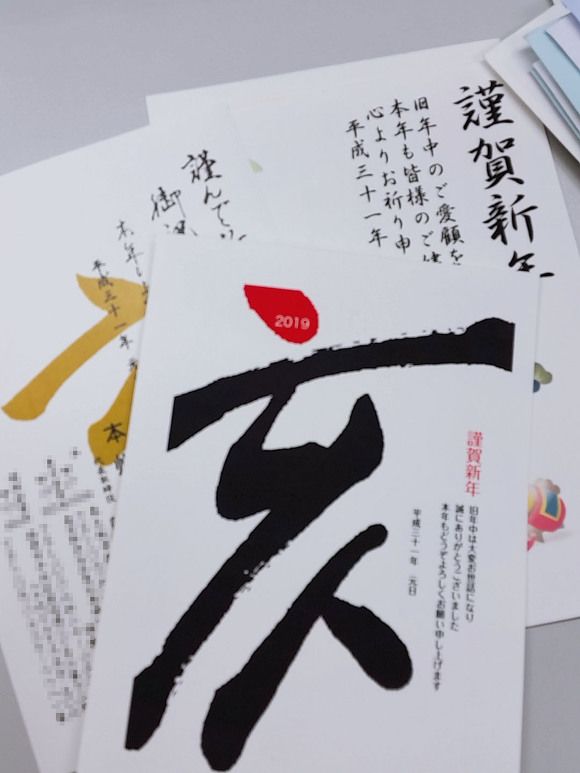 2019
亥
謹賀新年
旧年中は大変お世話になり
誠にありがとうございました
本年もどうぞよろしくお願い申し上げます
平成三十一年 元旦
謹賀新年
旧年中のご愛顧を
本年も皆様のご
心よりお祈り申
平成三十一年
謹んで
御
本年も
平成三十一年
本